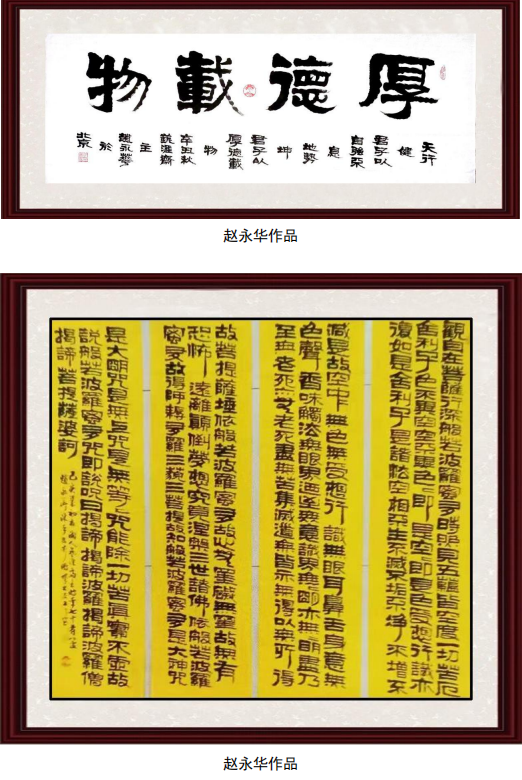 厚德載物
天行
健
君子以
自強不
息
地勢
坤
君子以
厚德載
物
辛丑秋
齋
主
趙永華
於
北京
赵永华作品
觀自在菩薩行深般若波羅蜜多時照見五蘊皆空度一切苦厄
舍利子色不異空空不異色色即是空空即是色受想行識亦
復如是舍利子是諸法空相不生不滅不垢不淨不增不
減是故空中無色無受想行識無眼耳鼻舌身意無
色聲香味觸法無眼界乃至無意識界無無明亦無無明盡乃
至無老死亦無老死盡無苦集滅道無智亦無得以無所得
故菩提薩埵依般若波羅蜜多故心無罣礙無罣礙故無有
恐怖遠離顛倒夢想究竟涅槃三世諸佛依般若波羅
蜜多故得阿耨多羅三藐三菩提故知般若波羅蜜多是大神咒
是大明咒是無上咒是無等等咒能除一切苦真實不虛故
說般若波羅蜜多咒即說咒曰揭諦揭諦波羅揭諦波羅僧
揭諦菩提薩婆訶
赵永华作品